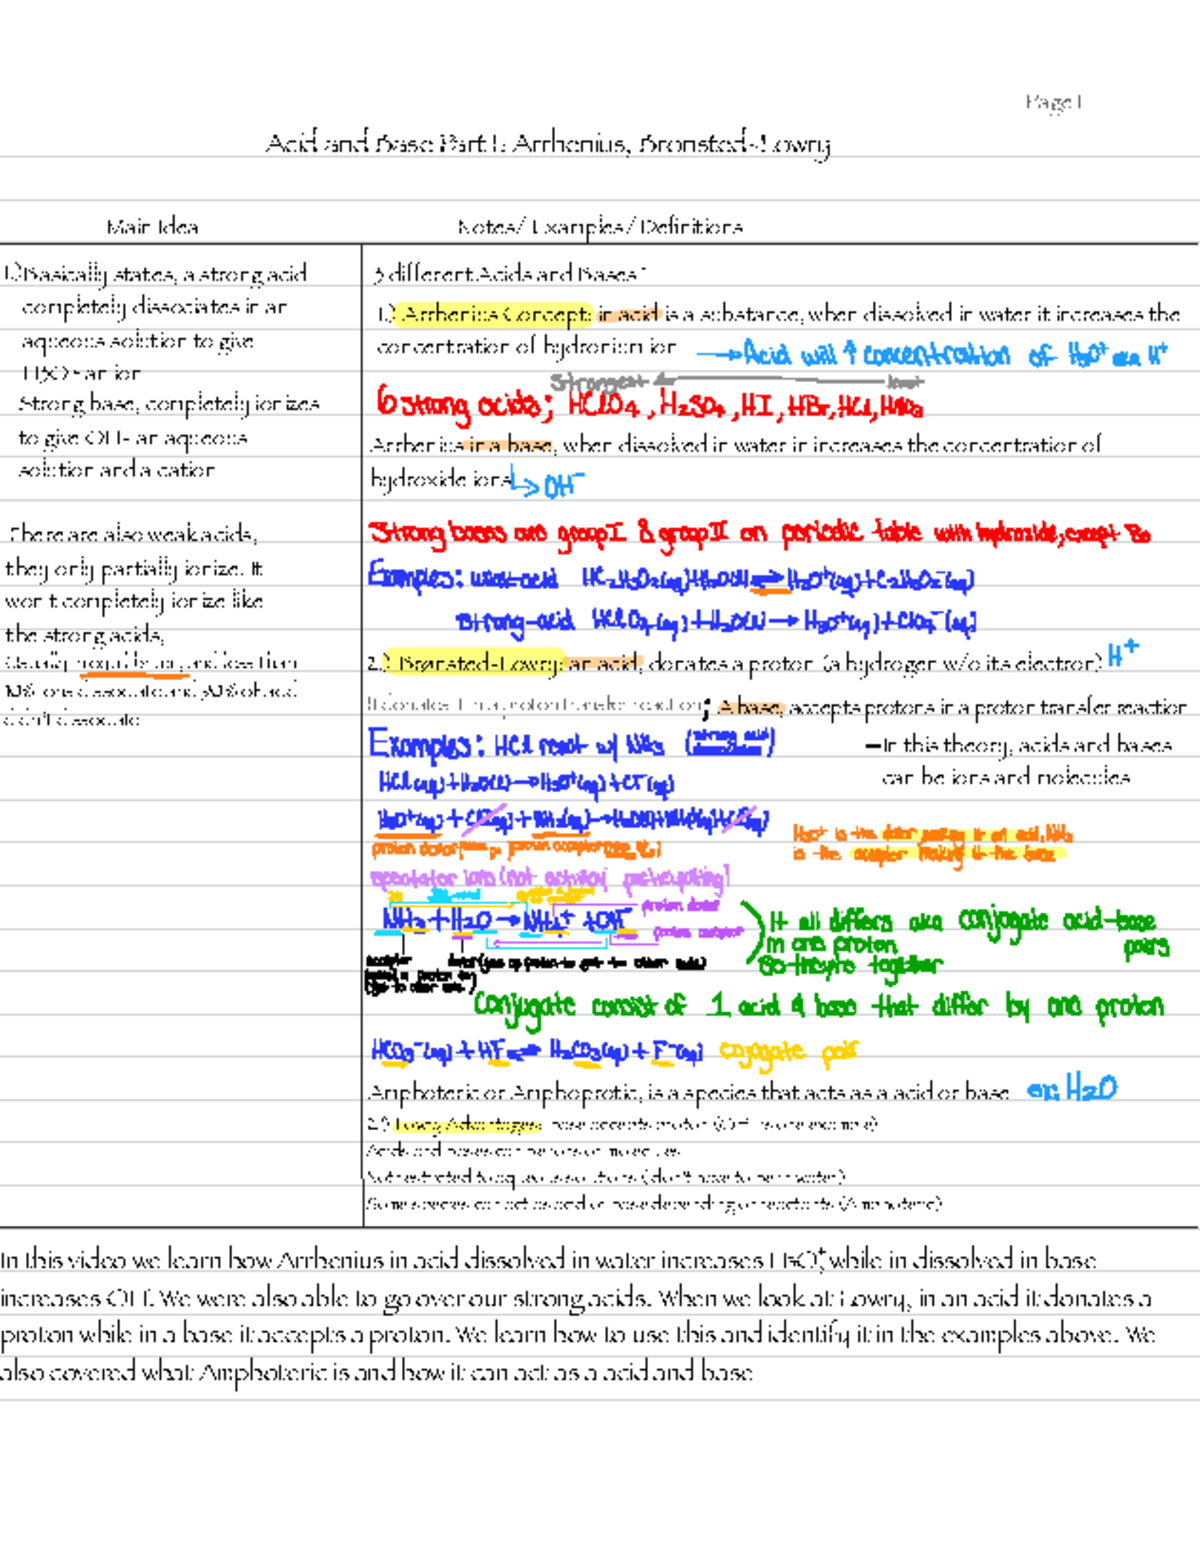 Page 1
Acid and Base Part 1: Arrhenius, Bronsted-Lowry
Main Idea
Notes/ Examples/ Definitions
1.) Basically states, a strong acid
completely dissociates in an
aqueous solution to give
H3O+ an ion
Strong base, completely ionizes
to give OH- an aqueous
solution and a cation
There are also weak acids,
they only partially ionize. It
won't completely ionize like
the strong acids,
Usually in equilibrium, and less than
10% ons dissociate and 90% of acid
didn't dissociate
3 different Acids and Bases:
1.) Arrhenius Concept: in acid is a substance, when dissolved in water it increases the
concentration of hydronium ion → Acid will ↑ concentration of H3O+ aka H+
Strongest least
6 strong acids; HClO4, H2SO4, HI, HBr, HCl, HNO3
Arrhenius in a base, when dissolved in water in increases the concentration of
hydroxide ions ↳ OH-
Strong bases are group I & group II on periodic table with hydroxide, except Be
Examples: weak-acid HC2H3O2(aq)+H2O(l) ⇌ H3O+(aq)+C2H3O2-(aq)
Strong-acid HClO4(aq)+H2O(l) → H3O+(aq)+ClO4-(aq)
2.) Brønsted-Lowry: an acid, donates a proton (a hydrogen w/o its electron) H+
It donates H+ in a proton transfer reaction; A base, accepts protons in a proton transfer reaction
Examples: HCl react w/ NH3 (strong acid
-In this theory, acids and bases
can be ions and molecules
HCl(aq)+H2O(l)→H3O+(aq)+Cl-(aq)
H3O+(aq)+Cl-(aq)+NH3(aq)→H2O(l)+NH4+(aq)+Cl-(aq)
H3O+ is the donor making it an acid, NH3
is the acceptor making it the base
proton donor proton acceptor
spectator ions (not actively participating)
proton donor
NH3 + H2O → NH4+ + OH-
proton acceptor
It all differs aka conjugate acid-base
in one proton pairs
So they're together
acceptor
Conjugate consist of 1 acid & base that differ by one proton
HCO3-(aq) + HF ⇌ H2CO3(aq) + F-(aq) conjugate pair
Amphoteric or Amphoprotic, is a species that acts as a acid or base ex: H2O
2.) Lowry Advantages: base accepts proton (OH- is one example)
Acids and bases can be ions or molecules
Not restricted to aqueous solutions (don't have to be in water)
Some species can act as acid or base depending on reactants (Amphoteric)
In this video we learn how Arrhenius in acid dissolved in water increases H3O+, while in dissolved in base
increases OH-. We were also able to go over our strong acids. When we look at Lowry, in an acid it donates a
proton while in a base it accepts a proton. We learn how to use this and identify it in the examples above. We
also covered what Amphoteric is and how it can act as a acid and base